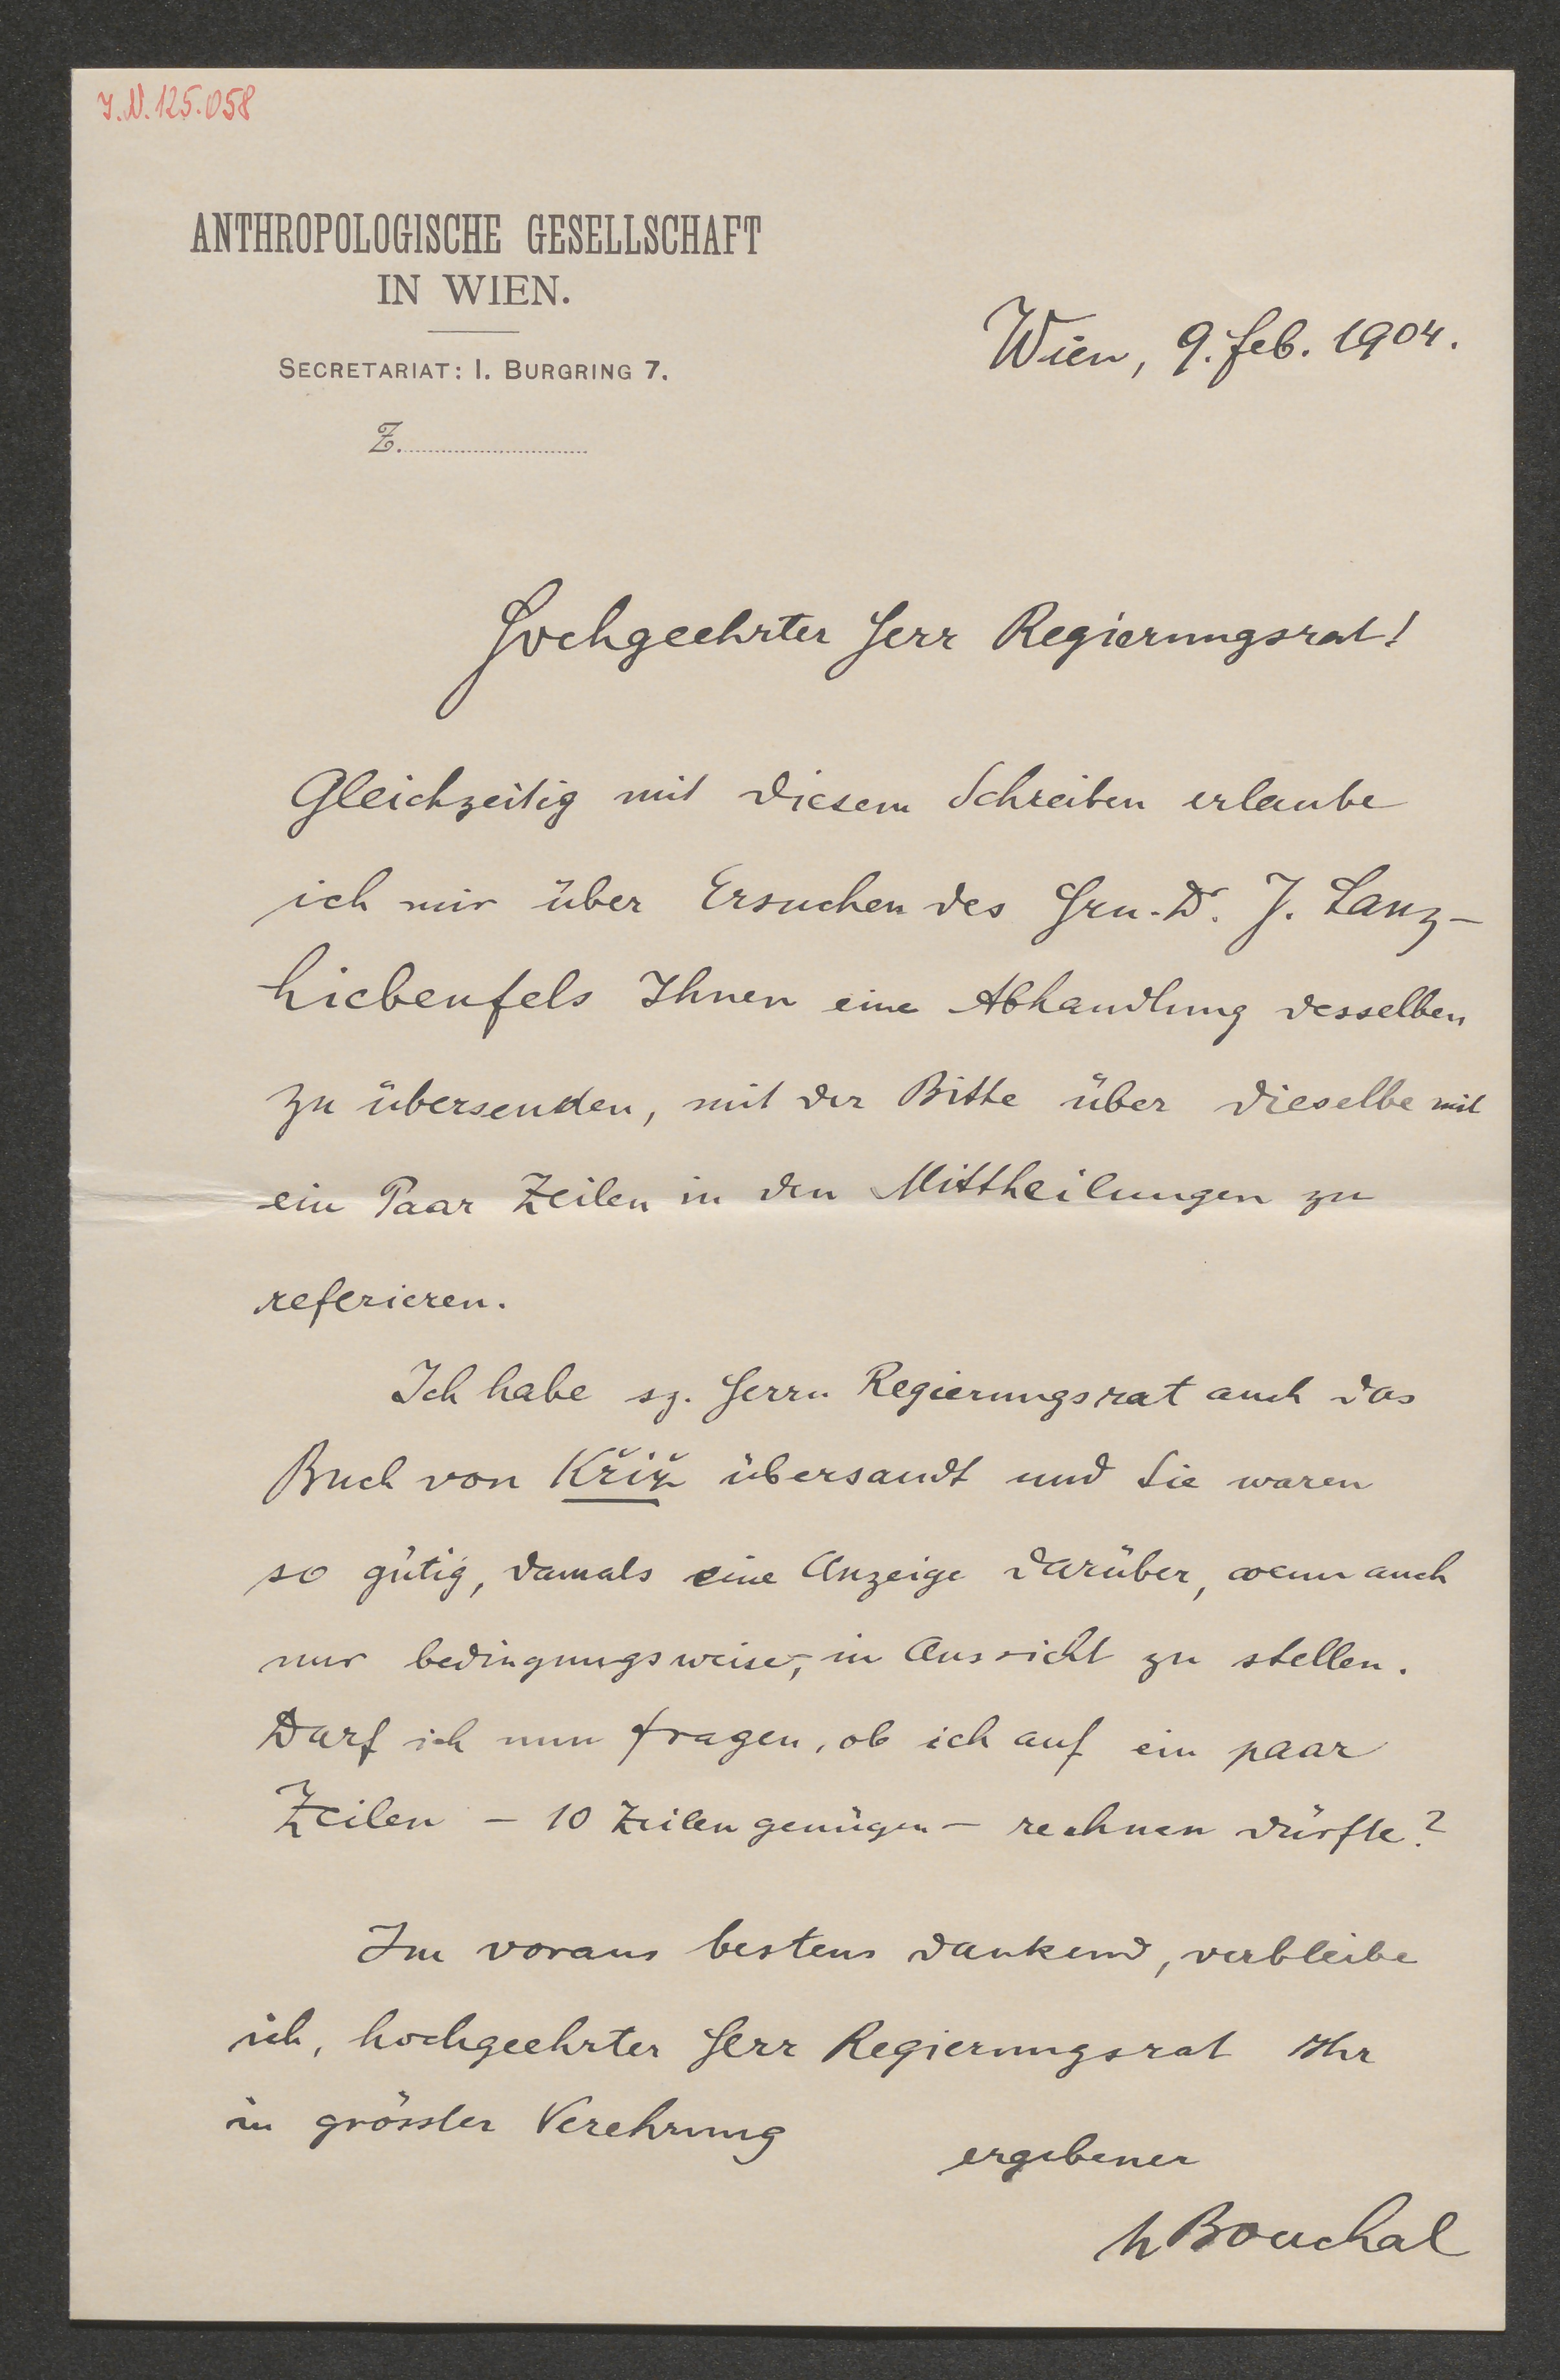 J.N. 125.058
ANTHROPOLOGISCHE GESELLSCHAFT
IN WIEN.
SECRETARIAT: I. BURGRING 7.
Z.
Wien, 9. Feb. 1904.
Hochgeehrter Herr Regierungsrat!
Gleichzeitig mit diesem Schreiben erlaube
ich mir über Ersuchen des Hrn. Dr. J. Lanz-
Liebenfels Ihnen eine Abhandlung desselben
zu übersenden, mit der Bitte über dieselbe mit
ein Paar Zeilen in den Mittheilungen zu
referieren.
Ich habe sz. Herrn Regierungsrat auch das
Buch von Křiž übersandt und Sie waren
so gütig, damals eine Anzeige darüber, wenn auch
nur bedingungsweise, in Aussicht zu stellen.
Darf ich nun fragen, ob ich auf ein paar
Zeilen – 10 Zeilen genügen – rechnen dürfte?
Im voraus bestens dankend, verbleibe
ich, hochgeehrter Herr Regierungsrat Ihr
in grösster Verehrung
ergebener
LBouchal